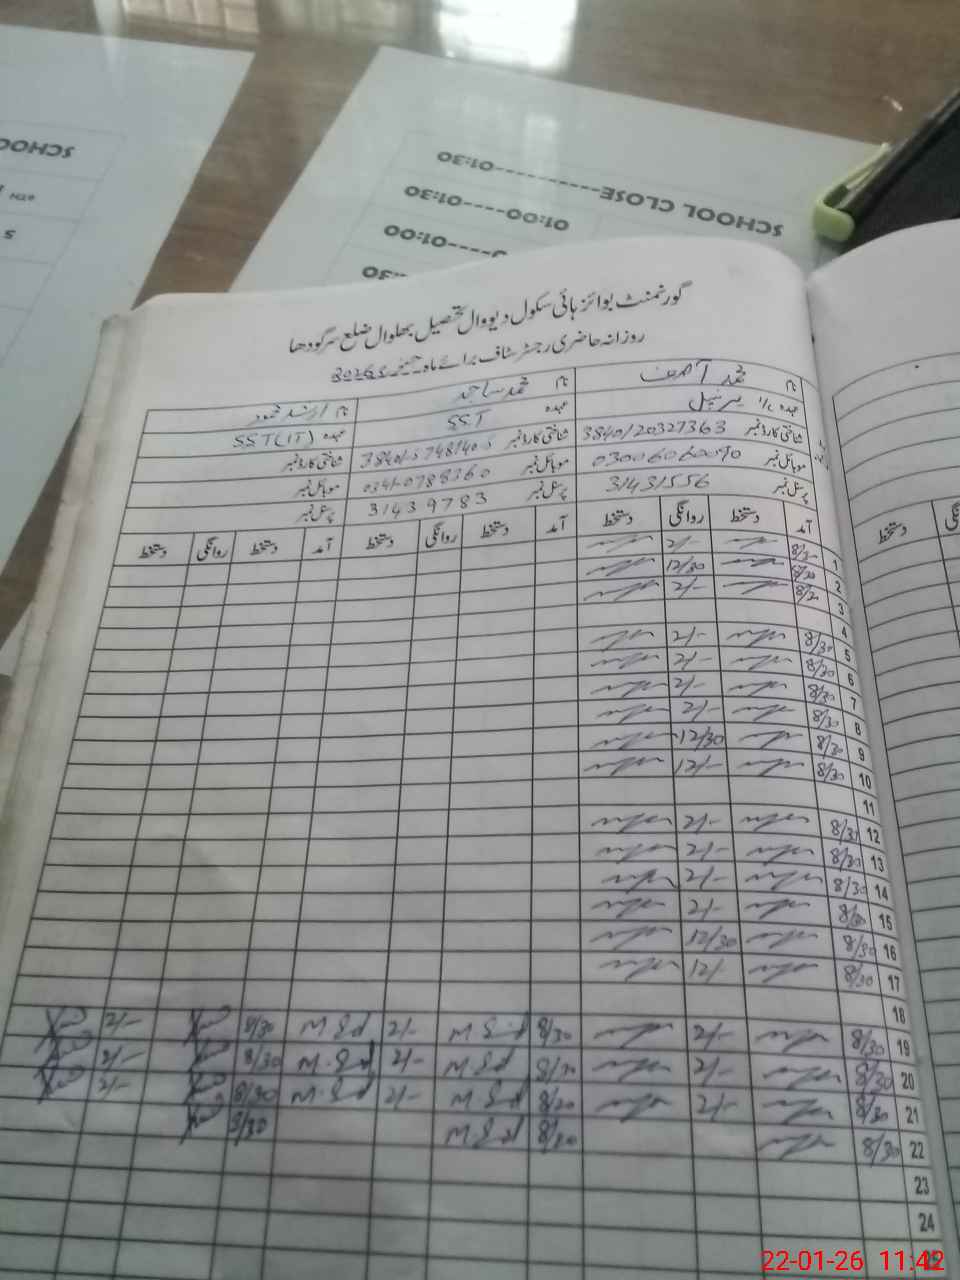 SCHOOL
9TH
S
SCHOOL CLOSE-----------01:30
01:00----01:30
-----01:00
گورنمنٹ بوائز ہائی سکول دیووال تحصیل بھلوال ضلع سرگودھا
روزانہ حاضری رجسٹر سٹاف برائے ماہ جنوری 2026ء
نام محمد آصف نام محمد ساجد نام ارشد محمود
عہدہ پرنسپل عہدہ SST عہدہ SST (IT)
شناختی کارڈ نمبر 3840120327363 شناختی کارڈ نمبر 38401-5748140-5 شناختی کارڈ نمبر
موبائل نمبر 03006060090 موبائل نمبر 0341-0788360 موبائل نمبر
پرسنل نمبر 31431556 پرسنل نمبر 31439783 پرسنل نمبر
آمد دستخط روانگی دستخط آمد دستخط روانگی دستخط آمد دستخط روانگی دستخط
1 8/30 2/-
2 8/30 12/30
3 8/30 2/-
4
5 8/30 2/-
6 8/30 2/-
7 8/30 2/-
8 8/30 2/-
9 8/30 12/30
10 8/30 12/-
11
12 8/30 2/-
13 8/30 2/-
14 8/30 2/-
15 8/30 2/-
16 8/30 12/30
17 8/30 12/
18
19 8/30 2/- 8/30 M Sd 2/- M Sd 8/30 2/-
20 8/30 2/- 8/30 M Sd 2/- M.Sd 8/30 2/-
21 8/30 2/- 8/30 M Sd 2/- M.Sd 8/30 2/-
22 8/30 8/30 M Sd 8/30
23
24
25
دستخط
22-01-26 11:42